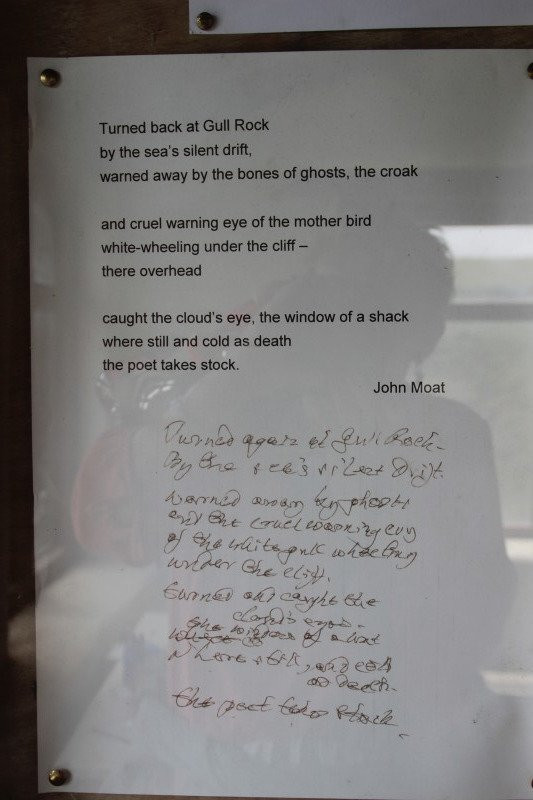 Turned back at Gull Rock
by the sea's silent drift,
warned away by the bones of ghosts, the croak
and cruel warning eye of the mother bird
white-wheeling under the cliff –
there overhead
caught the cloud's eye, the window of a shack
where still and cold as death
the poet takes stock.
John Moat
Turned again at Gull Rock.
By the sea's silent drift.
warned away by ghosts
and the cruel warning eye
of the white gull wheeling
under the cliff.
turned and caught the
cloud's eye.
the window of a hut
where still, and cold
as death.
the poet takes stock.